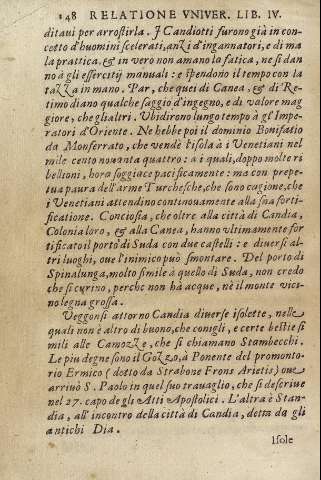 148 RELATIONE VNIVER. LIB. IV.
ditaui per arrostirla. I Candiotti furono già in con-
cetto d'huomini scelerati, anzi d'ingannatori, e di ma
la prattica, & in vero non amano la fatica, ne si dan
no à gli essercitij manuali: e spendono il tempo con la
tazza in mano. Par, che quei di Canea, & di Re-
timo diano qualche saggio d'ingegno, e di valore mag
giore, che gli altri. Vbidirono lungo tempo à gl' Impe-
ratori d'Oriente. Ne hebbe poi il dominio Bonifatio
da Monferrato, che vendè l'isola à i Venetiani nel
mile cento nouanta quattro: a i quali, doppo molte ri
bellioni, hora soggiace pacificamente: ma con prepe-
tua paura dell'arme Turchesche, che sono cagione, che
i Venetiani attendino continouamente alla sua forti-
ficatione. Conciosia, che oltre alla città di Candia,
Colonia loro, & alla Canea, hanno vltimamente for
tificato il porto di Suda con due castelli: e diuersi al-
tri luoghi, oue l'inimico può smontare. Del porto di
Spinalunga, molto simile a quello di Suda, non credo
che si curino, perche non hà acque, nè il monte vici-
no legna grossa.
Veggonsi attorno Candia diuerse isolette, nelle
quali non è altro di buono, che conigli, e certe bestie si
mili alle Camozze, che si chiamano Stambecchi.
Le piu degne sono il Gozzo, à Ponente del promonto-
rio Ermico (detto da Strabone Frons Arietis) oue
arriuò S. Paolo in quel suo trauaglio, che si descriue
nel 27. capo de gli Atti Apostolici. L'altra è Stan-
dia, all'incontro della città di Candia, detta da gli
antichi Dia.
Isole